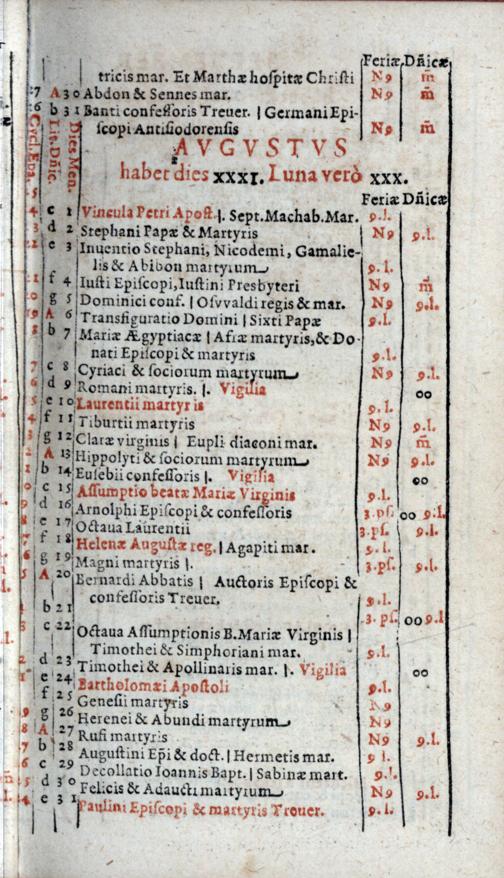 Feriæ Dñicæ
tricis mar. Et Marthæ hoſpitæ Chriſti N9 m̃
27 A 30 Abdon & Sennes mar. N9 m̃
26 b 31 Banti confeſſoris Treuer. | Germani Epi-
ſcopi Antiſiodorenſis N9 m̃
Cycl. Epa. Lit. Dñic. Dies Men.
AVGVSTVS
habet dies XXXI. Luna verò XXX.
Feriæ Dñicæ
c 1 Vincula Petri Apoſt. |. Sept. Machab. Mar. 9.l.
d 2 Stephani Papæ & Martyris N9 9.l.
e 3 Inuentio Stephani, Nicodemi, Gamalie-
lis & Abibon martyrum 9.l.
f 4 Iuſti Epiſcopi, Iuſtini Presbyteri N9 m̃
g 5 Dominici conf. | Oſvvaldi regis & mar. N9 9.l.
A 6 Transfiguratio Domini | Sixti Papæ 9.l.
b 7 Mariæ Ægyptiacæ | Afræ martyris, & Do-
nati Epiſcopi & martyris 9.l.
c 8 Cyriaci & ſociorum martyrum N9 9.l.
d 9 Romani martyris. |. Vigilia oo
e 10 Laurentii martyris 9.l.
f 11 Tiburtii martyris N9 9.l.
g 12 Claræ virginis | Eupli diaconi mar. N9 m̃
A 13 Hippolyti & ſociorum martyrum N9 9.l.
b 14 Euſebii confeſſoris |. Vigilia oo
c 15 Aſſumptio beatæ Mariæ Virginis 9.l.
d 16 Arnolphi Epiſcopi & confeſſoris 3.pſ. oo 9.l.
e 17 Octaua Laurentii 3.pſ. 9.l.
f 18 Helenæ Auguſtæ reg. | Agapiti mar. 9.l.
g 19 Magni martyris |. 3.pſ. 9.l.
A 20 Bernardi Abbatis | Auctoris Epiſcopi &
confeſſoris Treuer. 9.l.
b 21 3.pſ. oo 9.l.
c 22 Octaua Aſſumptionis B. Mariæ Virginis |
Timothei & Simphoriani mar. 9.l.
d 23 Timothei & Apollinaris mar. |. Vigilia oo
e 24 Bartholomæi Apoſtoli 9.l.
f 25 Geneſii martyris N9
g 26 Herenei & Abundi martyrum N9
A 27 Rufi martyris N9 9.l.
b 28 Auguſtini Ep̃i & doct. | Hermetis mar. 9 l.
c 29 Decollatio Ioannis Bapt. | Sabinæ mart. 9.l.
d 30 Felicis & Adaucti martyrum N9 9.l.
e 31 Paulini Epiſcopi & martyris Treuer. 9.l.